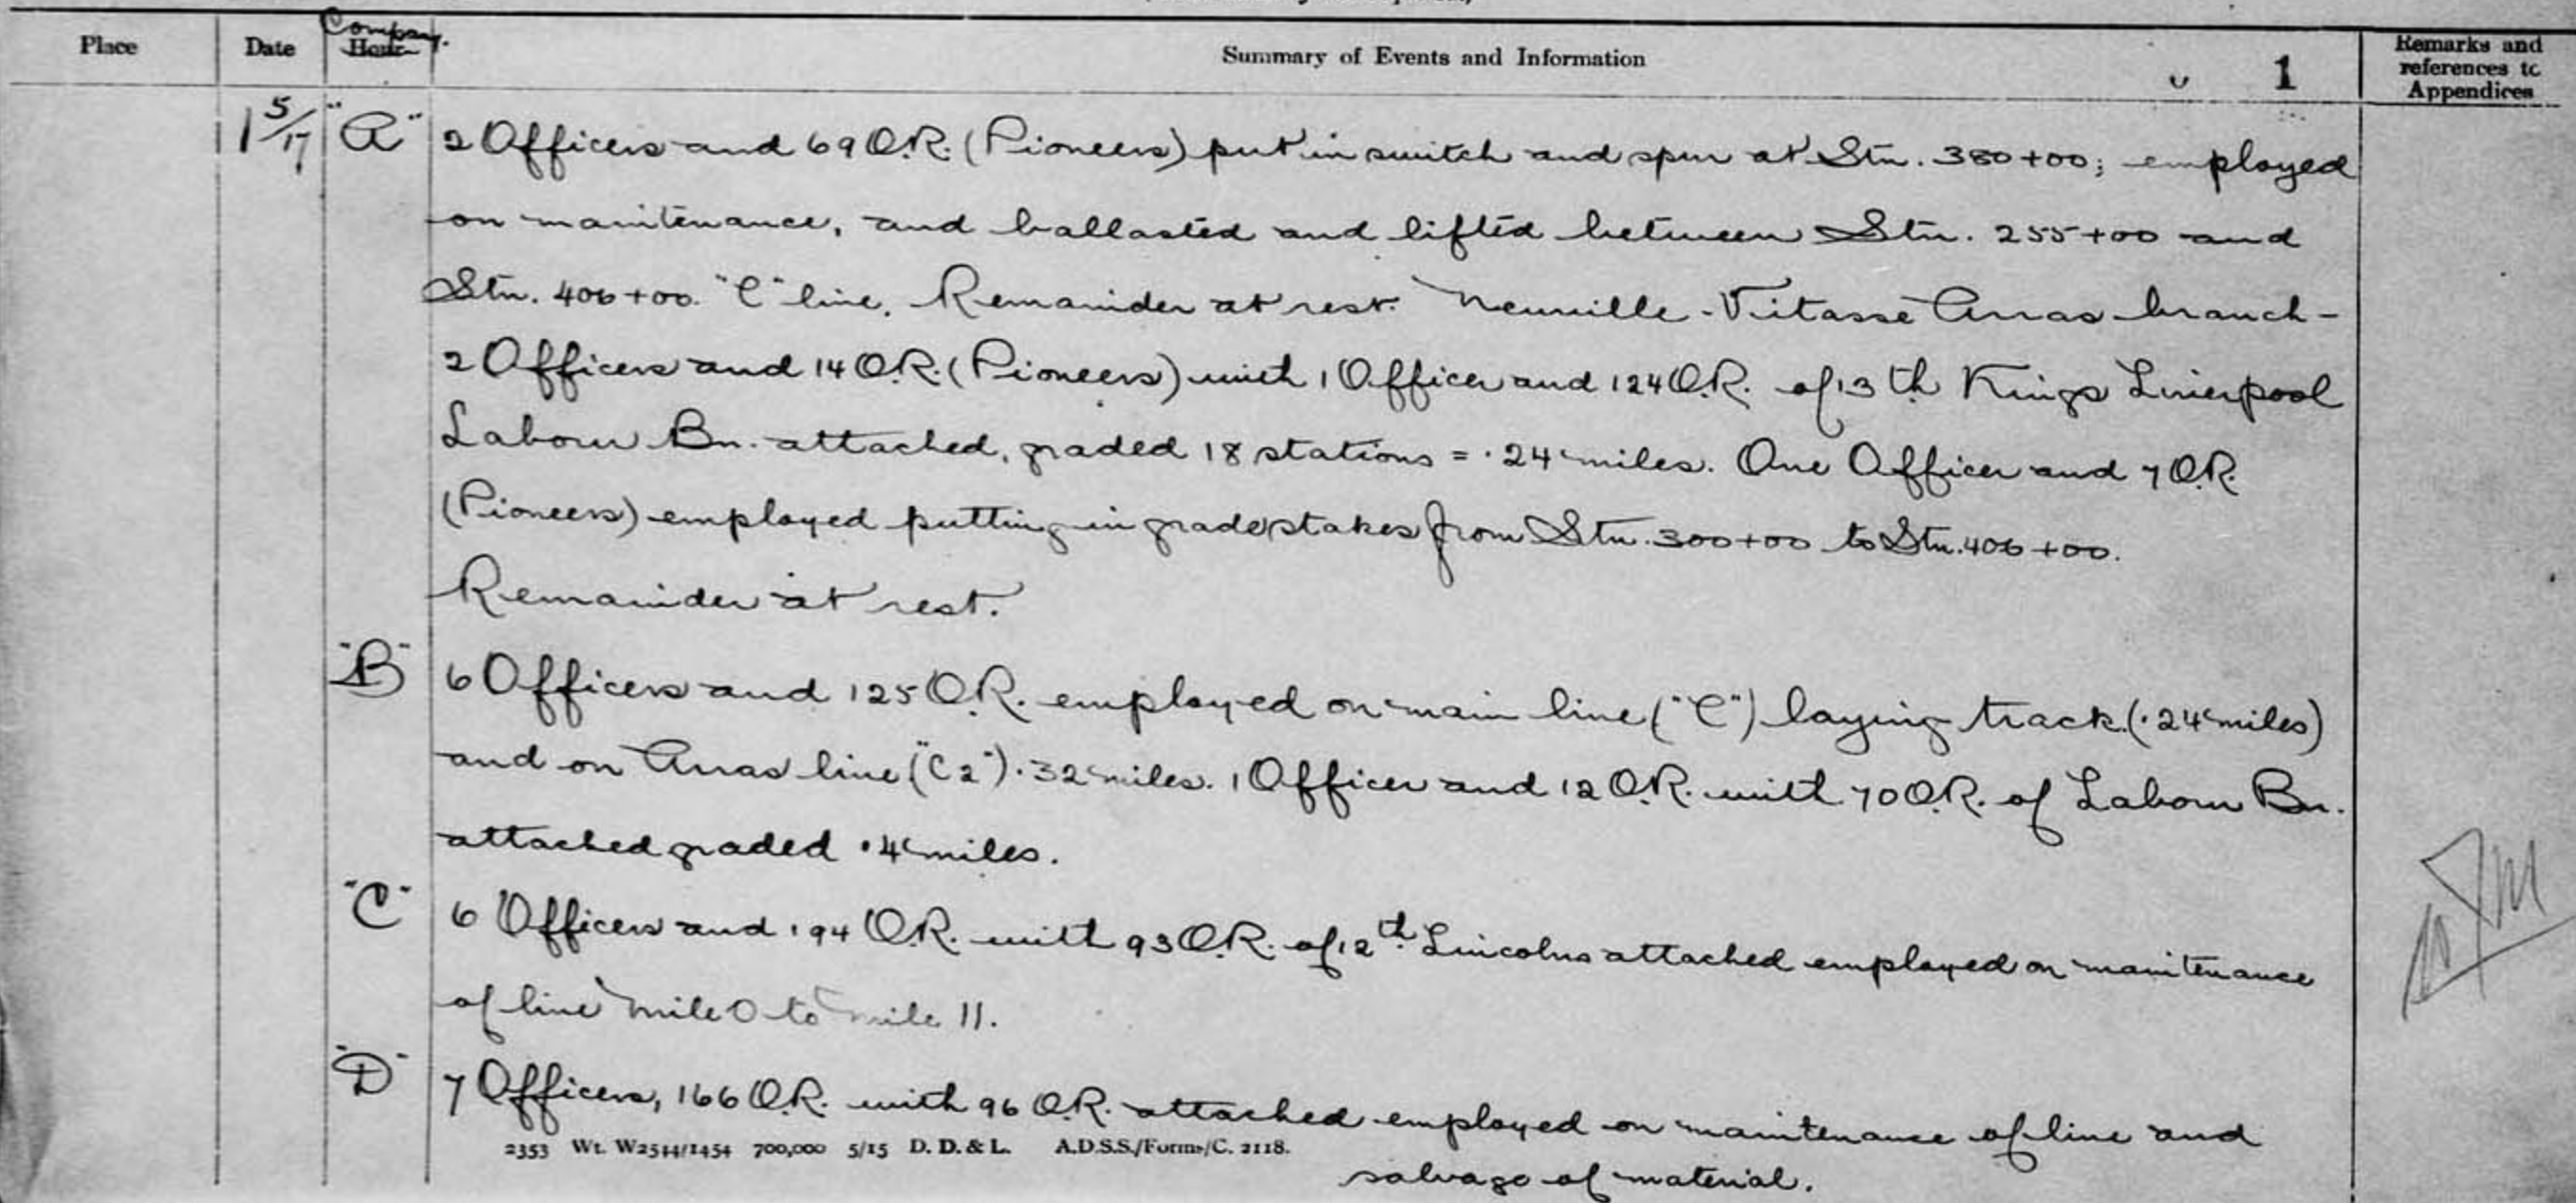 Company.
Place Date Hour Summary of Events and Information 1 Remarks and references to Appendices
1 5/17 "A" 2 Officers and 69 O.R. (Pioneers) put in switch and spur at Stn. 380+00; employed
on maintenance, and ballasted and lifted between Stn. 255+00 and
Stn. 406+00. "C" line. Remainder at rest. Neuville-Vitasse Arras branch -
2 Officers and 14 O.R. (Pioneers) with 1 Officer and 124 O.R. of 13th Kings Liverpool
Labour Bn. attached, graded 18 stations = .24 miles. One Officer and 7 O.R.
(Pioneers) employed putting in grade stakes from Stn. 300+00 to Stn. 406+00.
Remainder at rest.
"B" 6 Officers and 125 O.R. employed on main line ("C") laying track (.24 miles)
and on Arras line ("C2") .32 miles. 1 Officer and 12 O.R. with 70 O.R. of Labour Bn.
attached graded .4 miles.
"C" 6 Officers and 194 O.R. with 93 O.R. of 12th Lincolns attached employed on maintenance
of line mile 0 to mile 11.
"D" 7 Officers, 166 O.R. with 96 O.R. attached employed on maintenance of line and
2353 Wt. W2544/1454 700,000 5/15 D. D. & L. A.D.S.S./Forms/C. 2118.
salvage of material.